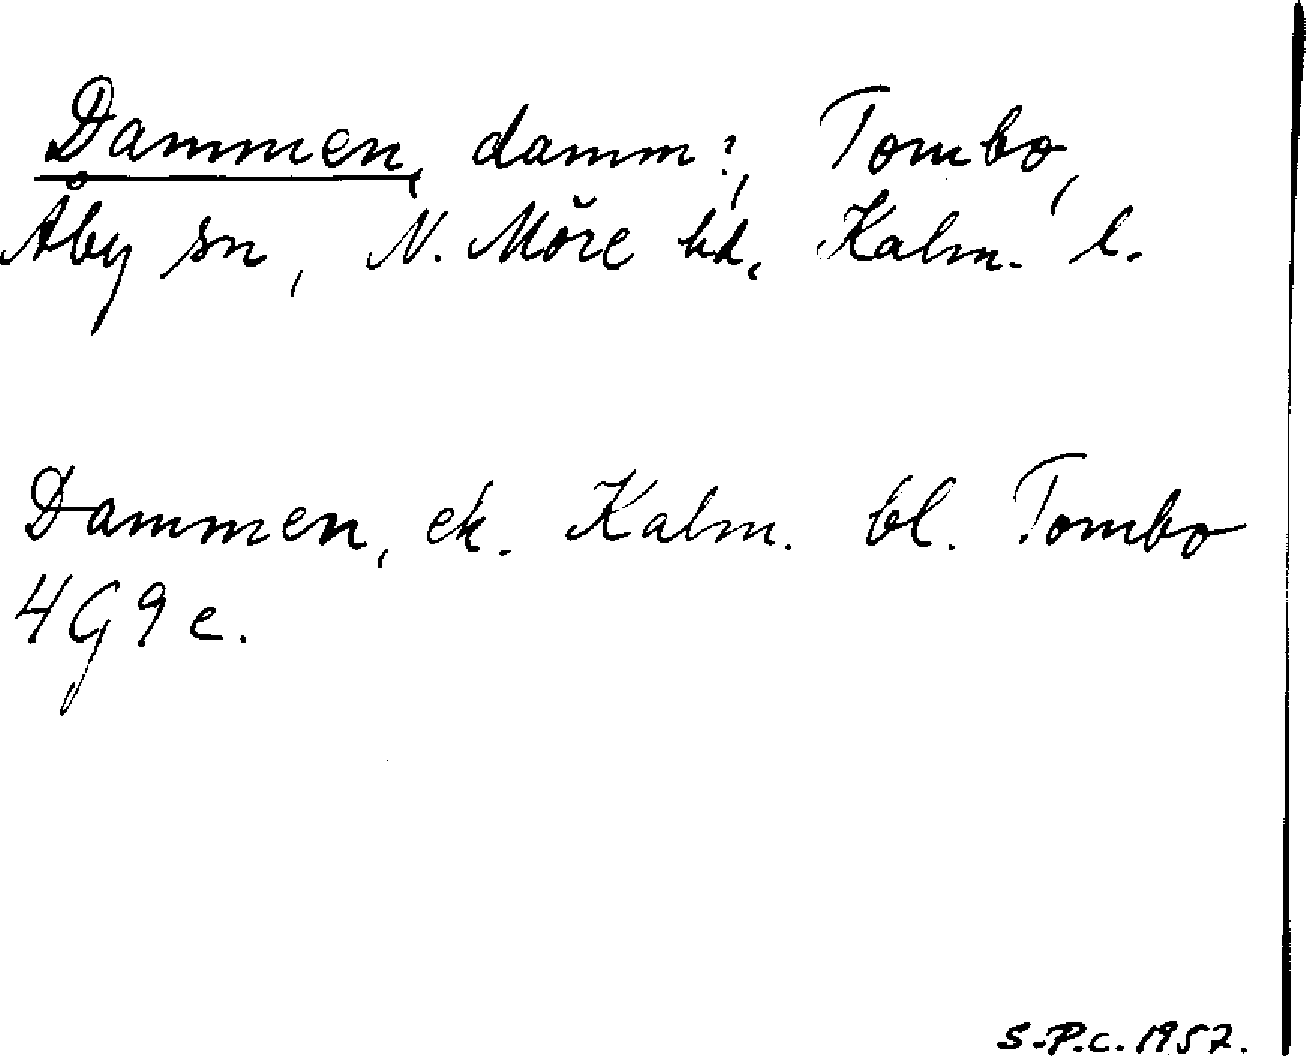 Dammen, damm?, Tombo,
Åby sn, N. Möre hd, Kalm. l.
Dammen, ek. Kalm. bl. Tombo
4G9e.
S.P.c. 1957.